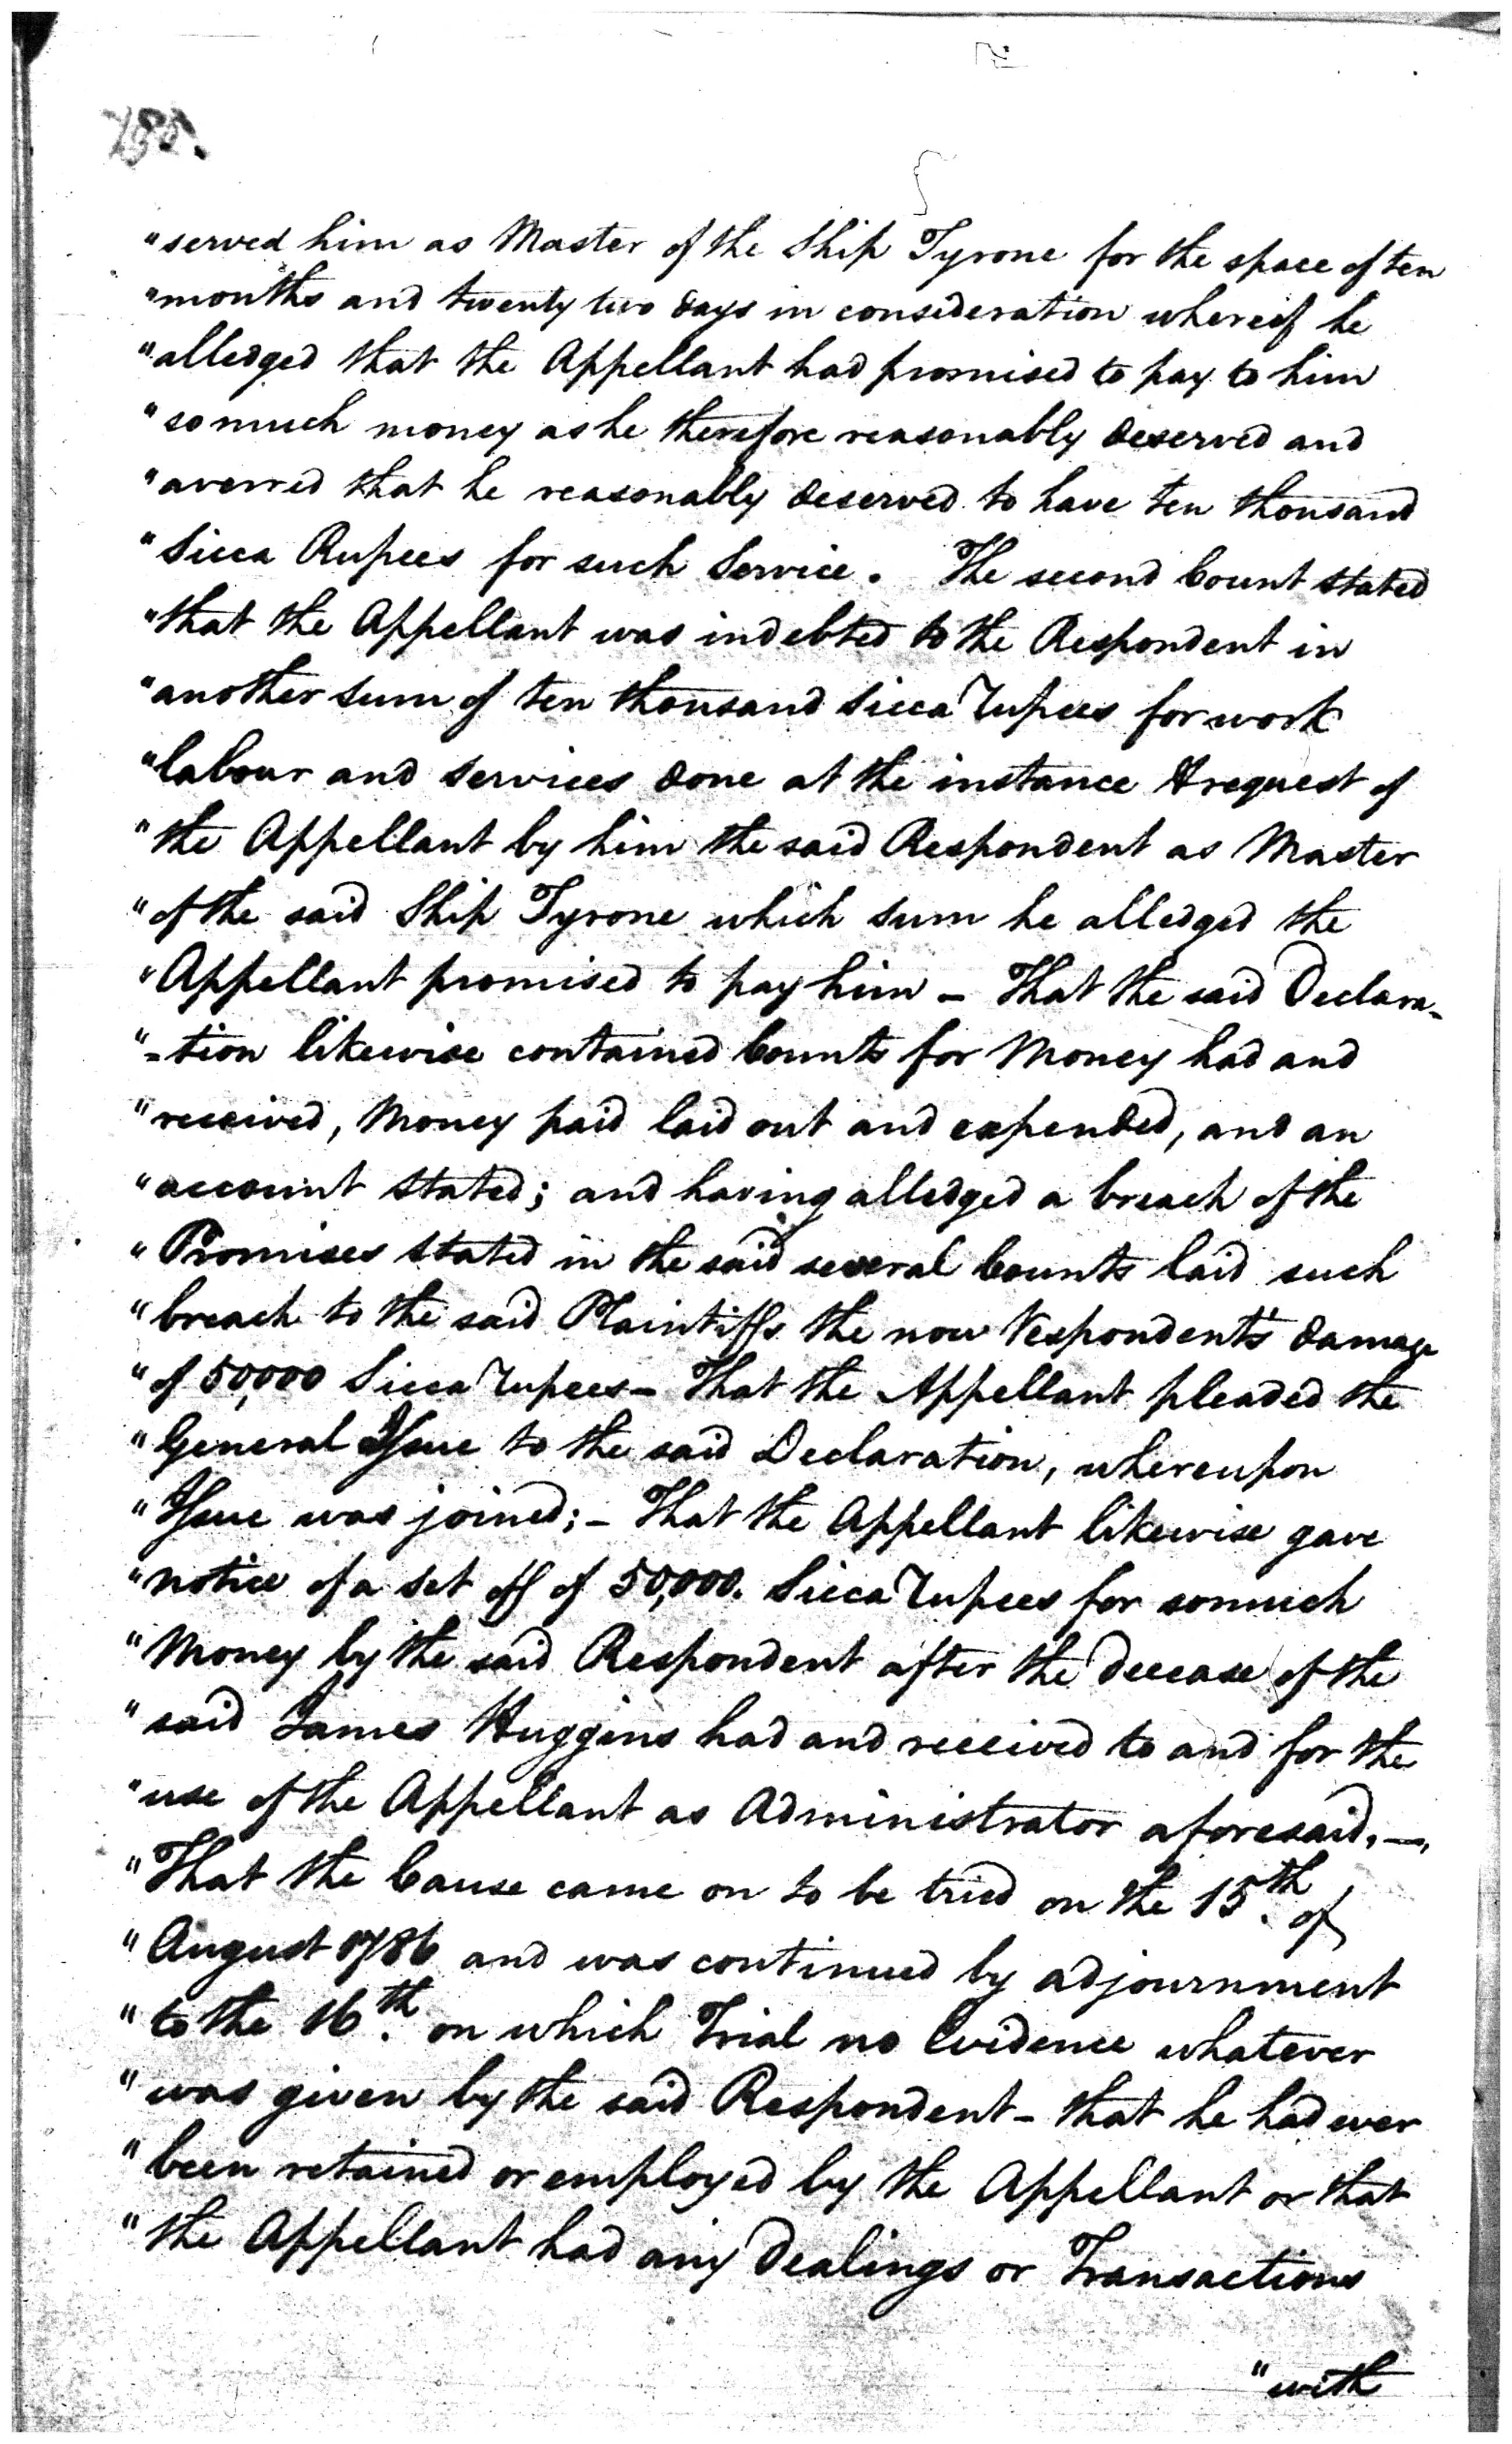 "served him as Master of the Ship Tyrone for the space of ten
"months and twenty two days in consideration whereof he
"alledged that the Appellant had promised to pay to him
"so much money as he therefore reasonably deserved and
"averred that he reasonably deserved to have ten thousand
"Sicca Rupees for such Service. The second Count stated
"that the Appellant was indebted to the Respondent in
"another sum of ten thousand Sicca Rupees for work
"labour and services done at the instance & request of
"the Appellant by him the said Respondent as Master
"of the said Ship Tyrone which sum he alledged the
"Appellant promised to pay him - That the said Declara-
"-tion likewise contained Counts for Money had and
"received, Money paid laid out and expended, and an
"account stated; and having alledged a breach of the
"Promises stated in the said several Counts laid such
"breach to the said Plaintiffs the now Respondent's damage
"of 50,000 Sicca Rupees - That the Appellant pleaded the
"General Issue to the said Declaration, whereupon
"Issue was joined; - That the Appellant likewise gave
"notice of a set off of 50,000. Sicca Rupees for so much
"Money by the said Respondent after the decease of the
"said James Huggins had and received to and for the
"use of the Appellant as Administrator aforesaid. —
"That the Cause came on to be tried on the 15.th of
"August 1786 and was continued by adjournment
"to the 16.th on which Trial no Evidence whatever
"was given by the said Respondent - that he had ever
"been retained or employed by the Appellant or that
"the Appellant had any Dealings or Transactions
"with